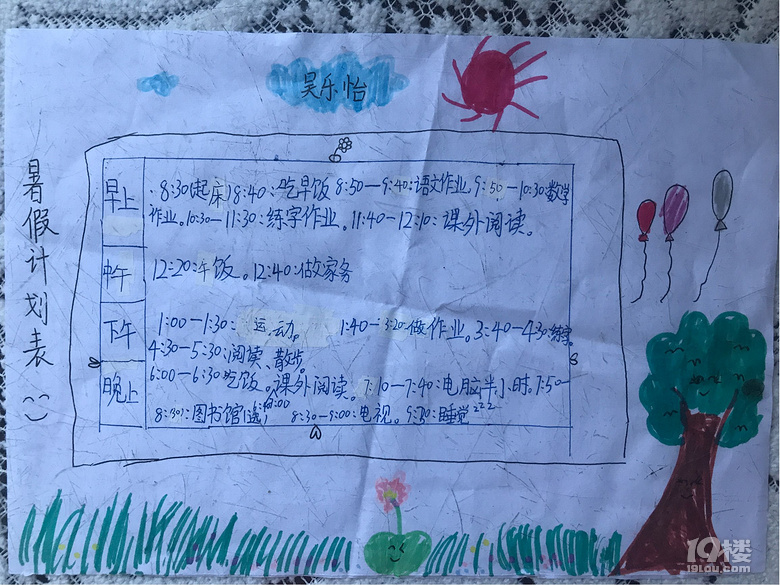 吴乐怡
暑假计划表
早上
8:30(起床)8:40:吃早饭 8:50—9:40:语文作业.9:50—10:30数学
作业.10:30—11:30:练字作业.11:40—12:10:课外阅读。
中午
12:20:午饭。12:40:做家务
下午
1:00—1:30:运动。 1:40—3:20:做作业。3:40—4:30:练字.
4:30—5:30:阅读、散步。
晚上
6:00—6:30吃饭。课外阅读。7:10—7:40:电脑半小时.7:50—
8:30:图书馆 8:30—9:00:电视。9:30:睡觉zzz
19楼
19lou.com